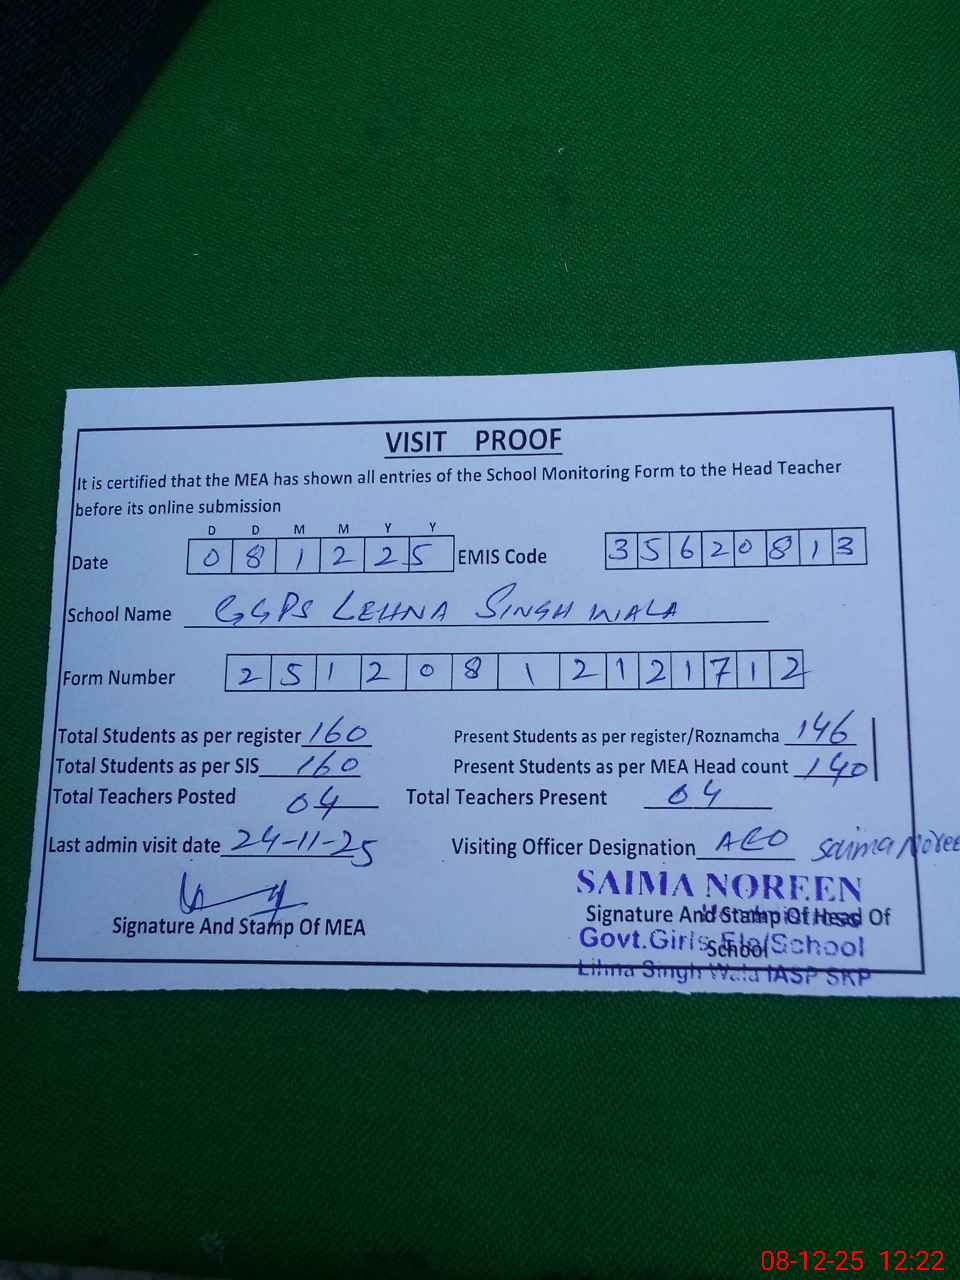 VISIT PROOF
It is certified that the MEA has shown all entries of the School Monitoring Form to the Head Teacher
before its online submission
D D M M Y Y
Date 0 8 1 2 2 5 EMIS Code 3 5 6 2 0 8 1 3
School Name GGPS LEHNA SINGH WALA
Form Number 2 5 1 2 0 8 1 2 1 2 1 7 1 2
Total Students as per register 160 Present Students as per register/Roznamcha 146
Total Students as per SIS 160 Present Students as per MEA Head count 140
Total Teachers Posted 04 Total Teachers Present 04
Last admin visit date 24-11-25 Visiting Officer Designation AEO Saima Noree
SAIMA NOREEN
Signature And Stamp Of MEA Signature And Stamp Of Head Of
School
Govt.Girls Ele/School
Lihna Singh Wala SKP
08-12-25 12:22